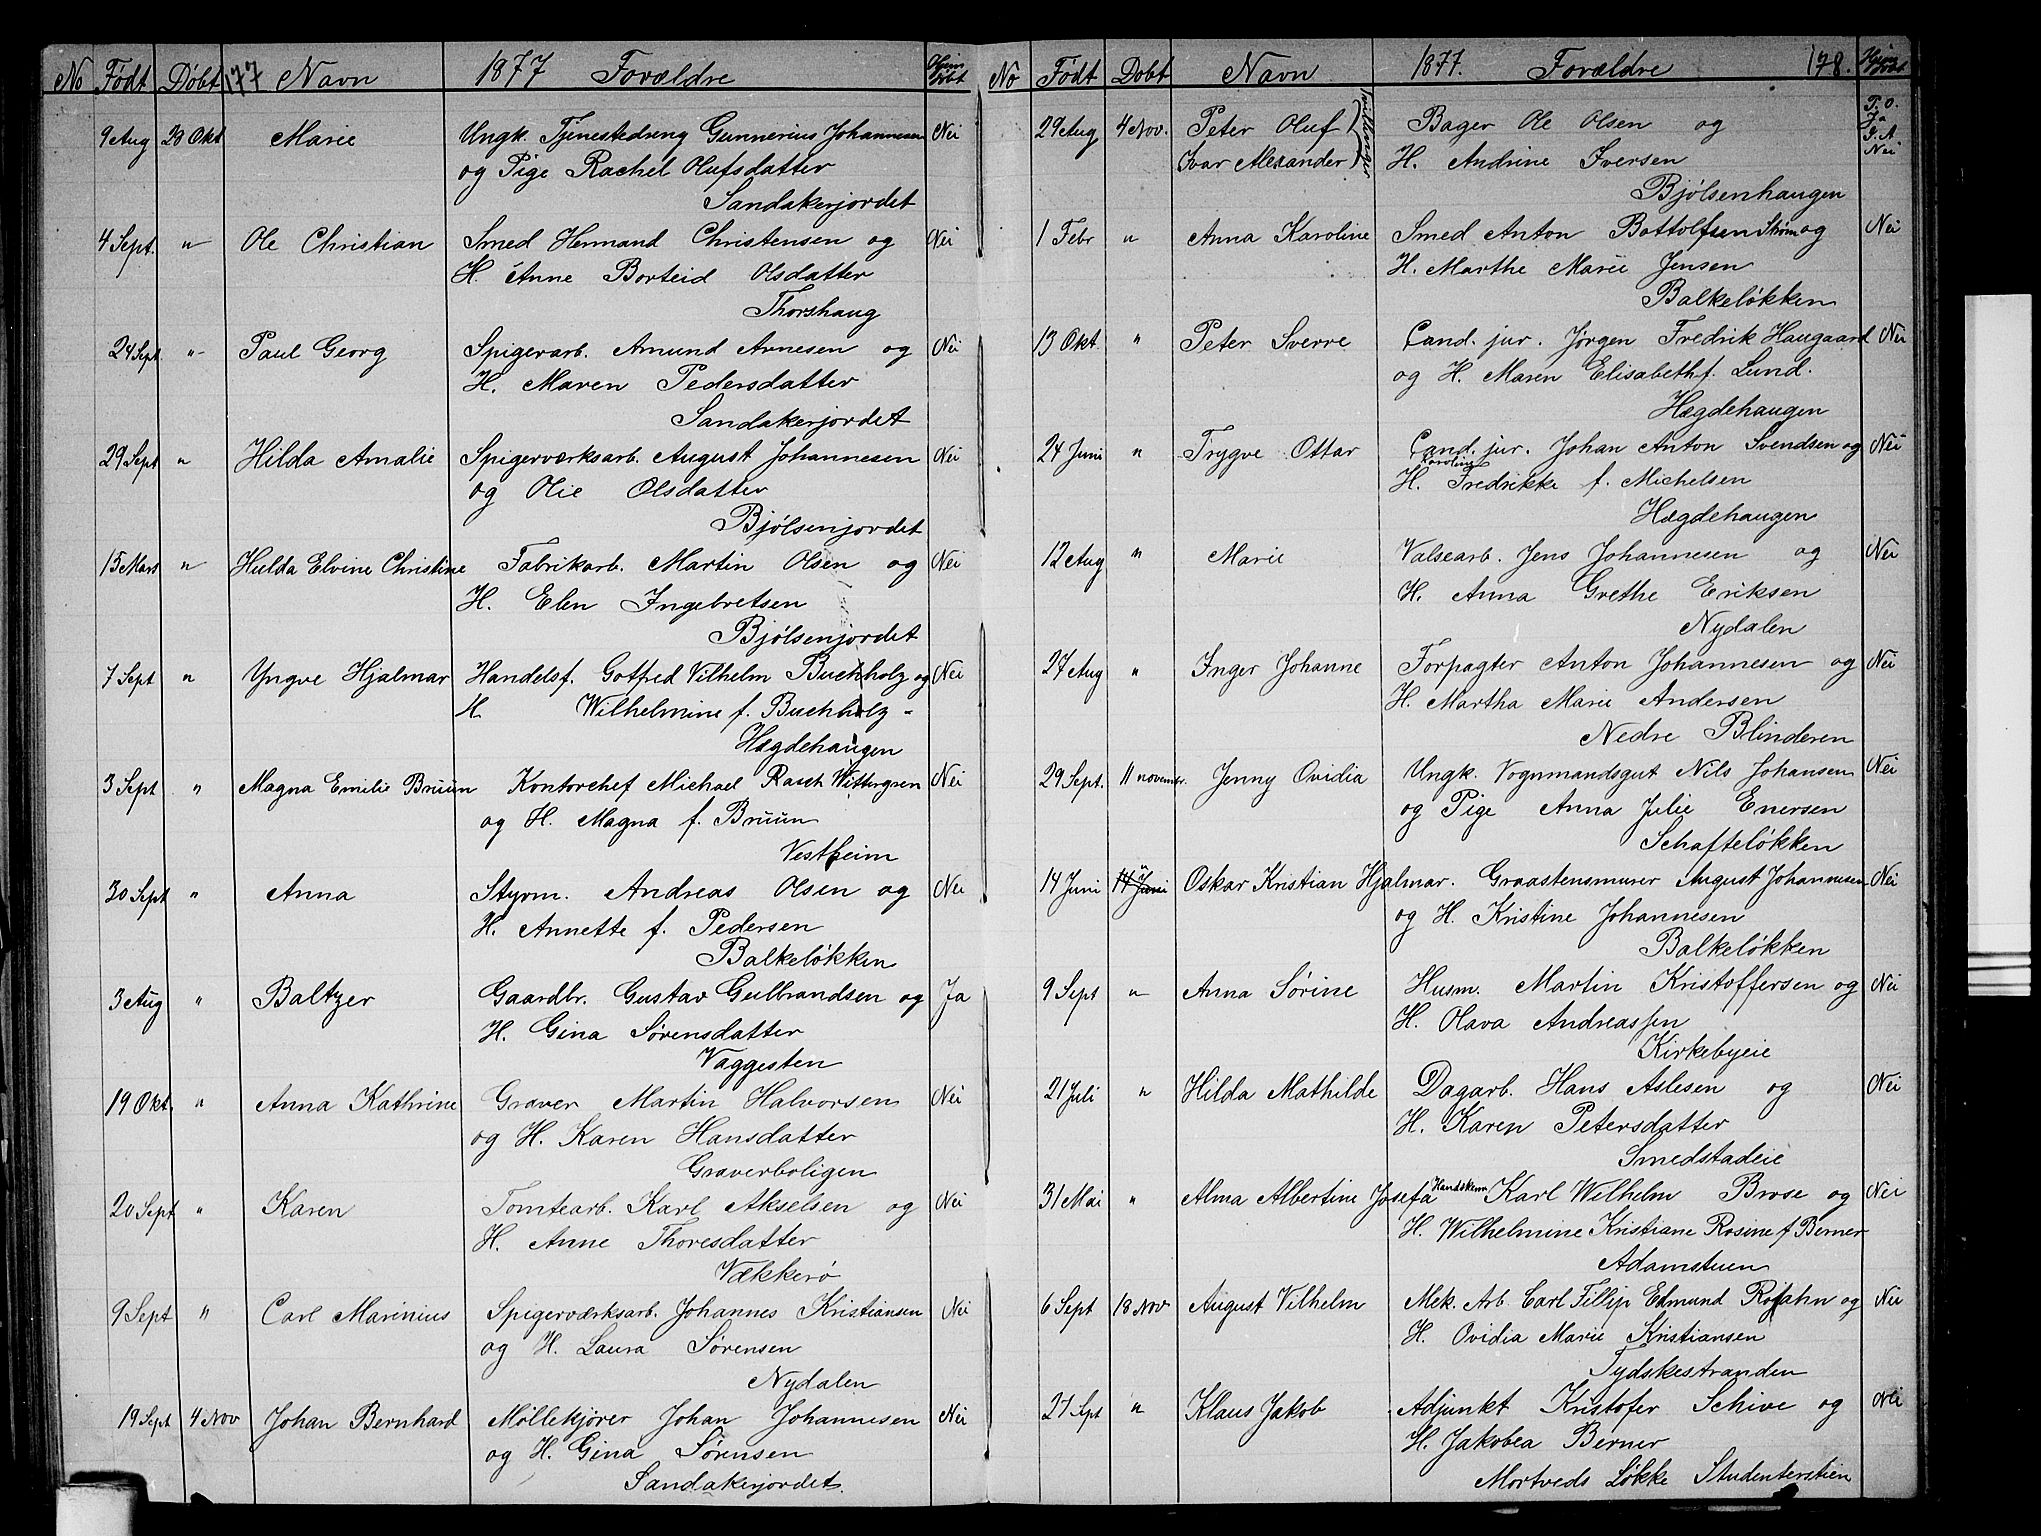 No Født Døbt 177 Navn 1877 Forældre Hjem døbt
9 Aug 28 Okt Marie Ungk. Tjenestedreng Gunnerius Johannesen Nei
og Pige Rachel Olufsdatter
Sandakerjordet
4 Sept. " Ole Christian Smed Hermand Christensen og Nei
H. Anne Borteid Olsdatter
Thorshaug
24 Sept " Paul Georg Spigerarb. Amund Arnesen og Nei
H. Maren Pedersdatter
Sandakerjordet
29 Sept " Hilda Amalie Spigerværksarb. August Johannesen Nei
og Olie Olsdatter
Bjølsenjordet
15 Mars " Hulda Elvine Christine Fabrikarb. Martin Olsen og Nei
H. Elen Ingebretsen
Bjølsenjordet
7 Sept " Yngve Hjalmar Handelsf. Gotfred Vilhelm Buchholz og Nei
H. Wilhelmine f. Buchholz -
Hægdehaugen
3 Sept " Magna Emilie Bruun Kontorchef Michael Rasch Wittergren Nei
og H. Magna f. Bruun
Vestheim
30 Sept " Anna Styrm. Andreas Olsen og Nei
H. Annette f. Pedersen
Balkeløkken
3 Aug " Baltzer Gaardbr. Gustav Gulbrandsen og Ja
H. Gina Sørensdatter
Vaggesten
19 Okt. " Anna Kathrine Graver Martin Halvorsen Nei
og H. Karen Hansdatter
Graverboligen
20 Sept " Karen Tomtearb. Karl Akselsen og Nei
H. Anne Thoresdatter
Vækkerø
9 Sept " Carl Marinius Spigerværksarb. Johannes Kristiansen Nei
og H. Laura Sørensen
Nydalen
19 Sept 4 Nov Johan Bernhard Møllekjører Johan Johannesen Nei
og H. Gina Sørensen
Sandakerjordet.
No Født Døbt Navn 1877. Forældre 178. Hjem døbt
29 Aug 4 Nov. Peter Oluf Tvillinger Bager Ole Olsen og P. O. Ja
Ivar Alexander H. Andrine Iversen I. A Nei
Bjølsenhaugen
1 Febr " Anna Karoline Smed Anton Bottolfsen Strøm og Nei
H. Marthe Marie Jensen
Balkeløkken
13 Okt " Peter Sverre Cand. jur. Jørgen Fredrik Haugaard Nei
og H. Maren Elisabeth f. Lund.
Hægdehaugen
24 Juni " Trygve Ottar Cand. jur. Johan Anton Svendsen og Nei
H. Karoline Fredrikke f. Michelsen
Hægdehaugen
12 Aug " Marie Valsearb. Jens Johannesen og Nei
H. Anna Grethe Eriksen
Nydalen
27 Aug " Inger Johanne Forpagter Anton Johannesen og Nei
H. Martha Marie Andersen
Nedre Blinderen
29 Sept. 11 novembr. Jenny Ovidia Ungk. Vognmandsgut Nils Johansen Nei
og Pige Anna Julie Enersen
Schafteløkken
14 Juni 14 Juni " Oskar Kristian Hjalmar. Graastensmurer August Johannesen Nei
og H. Kristine Johannesen
Balkeløkken
9 Sept " Anna Sørine Husm. Martin Kristoffersen og Nei
H. Olava Andreassen
Kirkebyeie
21 Juli " Hilda Mathilde Dagarb. Hans Aslesen og Nei
H. Karen Petersdatter
Smedstadeie
31 Mai " Alma Albertine Josefa Handskem Karl Wilhelm Brose og Nei
H. Wilhelmine Kristiane Rosine f Berner
Adamstuen
6 Sept 18 Nov August Vilhelm Mek. Arb. Carl Fillip Edmund og Nei
H. Ovidia Marie Kristiansen
Tydskestranden
21 Sept " Klaus Jakob Adjunkt Kristofer Schive og Nei
H. Jakobea Berner
Mortveds Løkke Studenterstien